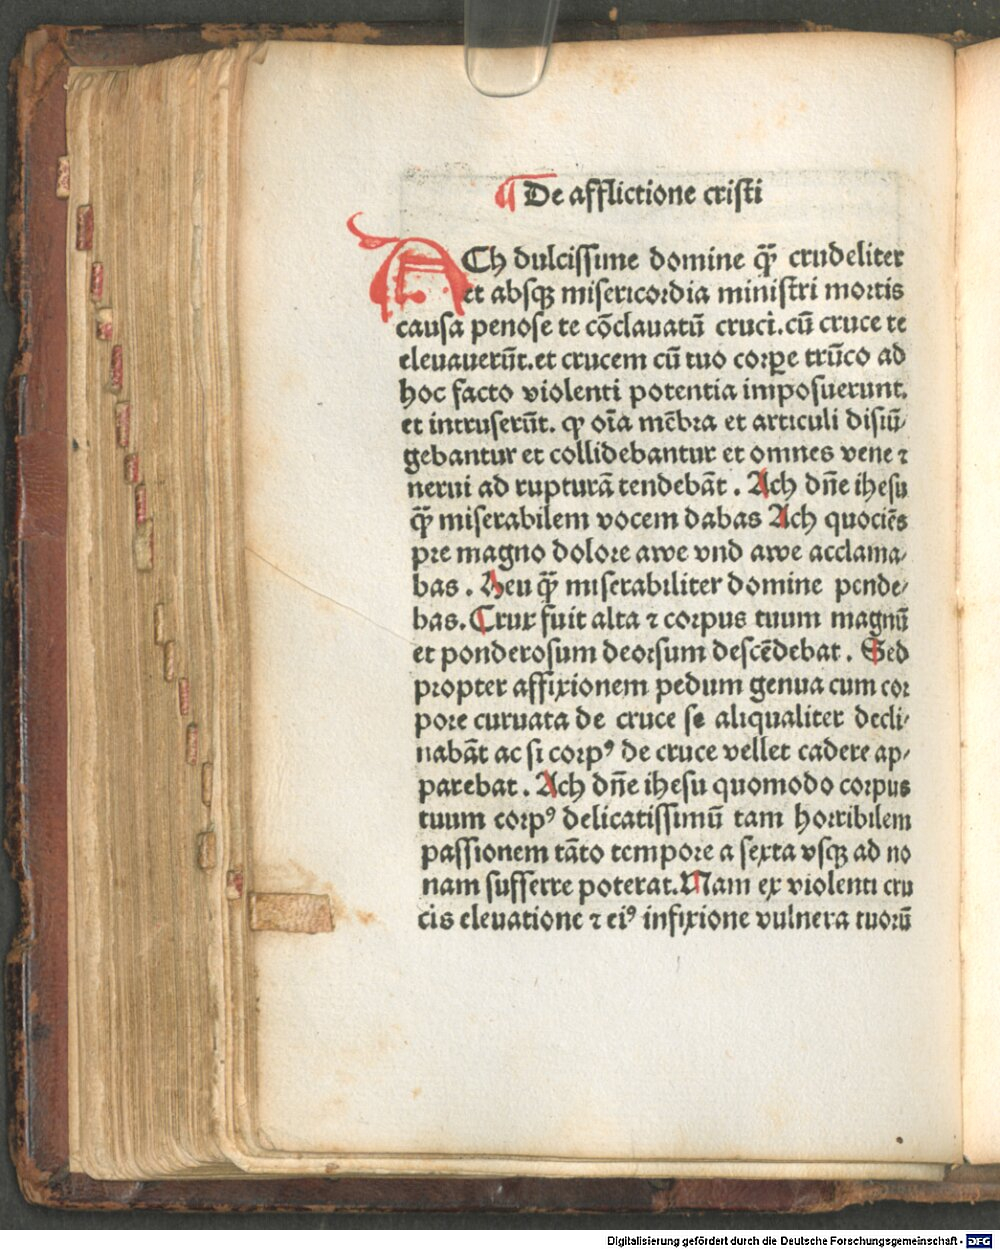 ¶ De afflictione cristi
ACh dulcissime domine q̃ꝫ crudeliter
et absqꝫ misericordia ministri mortis
causa penose te cõclauatũ cruci.cũ cruce te
eleuauerũt.et crucem cũ tuo corꝑe trũco ad
hoc facto violenti potentia imposuerunt.
et intruserũt. ꝙ oĩa mẽbra et articuli disiũ⸗
gebantur et collidebantur et omnes vene ⁊
nerui ad rupturã tendebãt . Ach dñe ihesu
q̃ꝫ miserabilem vocem dabas Ach quociẽs
pre magno dolore awe vnd awe acclama⸗
bas . Heu q̃ꝫ miserabiliter domine pende⸗
bas. Crux fuit alta ⁊ corpus tuum magnũ
et ponderosum deorsum descẽdebat . Sed
propter affixionem pedum genua cum cor
pore curuata de cruce se aliqualiter decli⸗
nabãt ac si corpꝰ de cruce vellet cadere ap⸗
parebat . Ach dñe ihesu quomodo corpus
tuum corpꝰ delicatissimũ tam horribilem
passionem tãto tempore a sexta vsqꝫ ad no
nam sufferre poterat.Nam ex violenti cru
cis eleuatione ⁊ eiꝰ infixione vulnera tuorũ
Digitalisierung gefördert durch die Deutsche Forschungsgemeinschaft - DFG